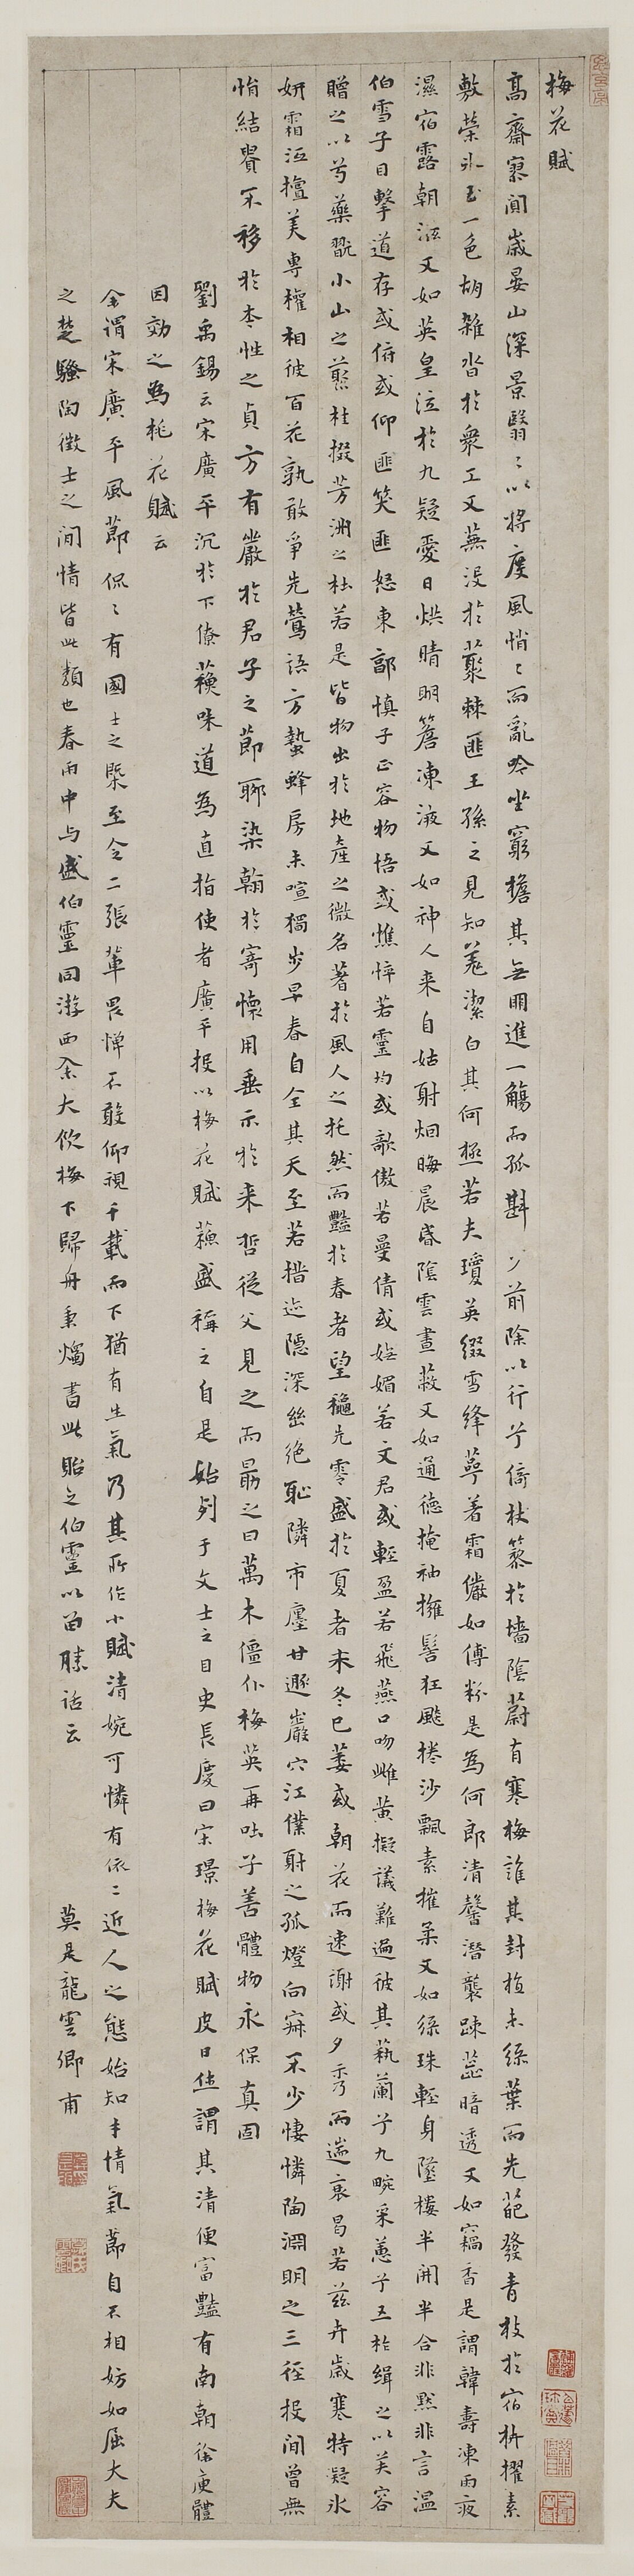 梅花賦
高齋寥闃歲晏山深景翳〻以將度風悄〻而亂吟坐窮檐其無朋進一觴而孤斟步前除以行兮倚杖藜於墻陰蔚有寒梅誰其封植未綠葉而先葩發青枝於宿枿擢素
敷榮冰玉一色胡雜沓於衆工又蕪沒於叢棘匪王孫之見知羌潔白其何極若夫瓊英綴雪絳蕚著霜儼如傅粉是為何郎清馨潛襲踈蕊暗透又如竊香是謂韓壽凍雨夜
濕宿露朝泫又如英皇泣於九疑愛日烘晴明簷凍液又如神人來自姑射烟晦晨昏陰雲晝蔽又如通德掩袖擁髻狂飇捲沙飄素摧柔又如綠珠輕身墜樓半開半合非默非言溫
伯雪子目擊道存或俯或仰匪笑匪怒東郭慎子正容物悟或憔悴若靈均或歌傲若曼倩或嫵媚若文君或輕盈若飛燕口吻雌黃擬議難遍彼其藝蘭兮九畹采蕙兮五柞緝之以芙容
贈之以芍藥翫小山之叢桂掇芳洲之杜若是皆物出於地產之微名著於風人之托然而豔於春者望穐先零盛於夏者未冬已萎或朝花而速謝或夕秀而遄衰曷若茲卉歲寒特凝冰
妍霜冱擅美專權相彼百花孰敢爭先鶯語方蟄蜂房未喧獨步早春自全其天至若措迹隱深幽絕恥隣市廛甘遯巖穴江僕射之孤燈向寂不少悽憐陶淵明之三徑投閒曾無
悁結貴不移於本性之貞方有巖於君子之節聊染翰於寄懷用垂示於来哲從父見之而勗之曰萬木僵仆梅英再吐子善體物永保真固
劉禹錫云宋廣平沉於下僚蘓味道為直指使者廣平投以梅花賦蘓盛稱之自是始列于文士之目史長慶曰宋璟梅花賦皮日休謂其清便富豔有南朝徐庾體
因効之為桃花賦云
余謂宋廣平風莭侃〻有國士之槩至令二張輩畏憚不敢仰視千載而下猶有生氣乃其所作小賦清婉可憐有依〻近人之態始知才情氣莭自不相妨如屈大夫
之楚騷陶徵士之閒情皆此類也春雨中与盛伯靈同游西佘大飲梅下歸舟秉燭書此貽之伯靈以畱賸話云
莫是龍雲卿甫